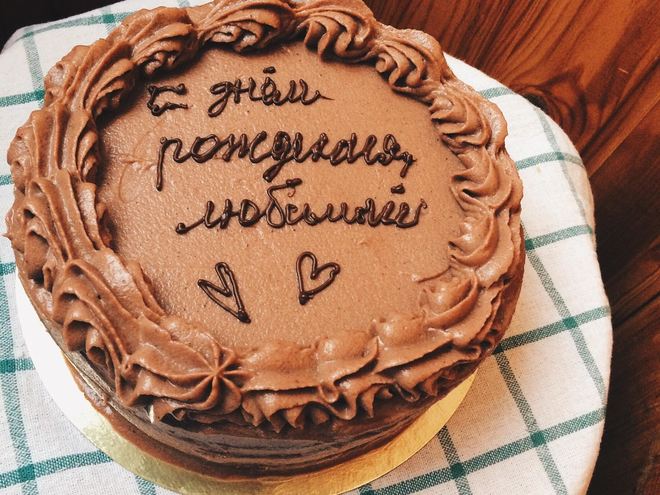 с днём
рождения,
любимый